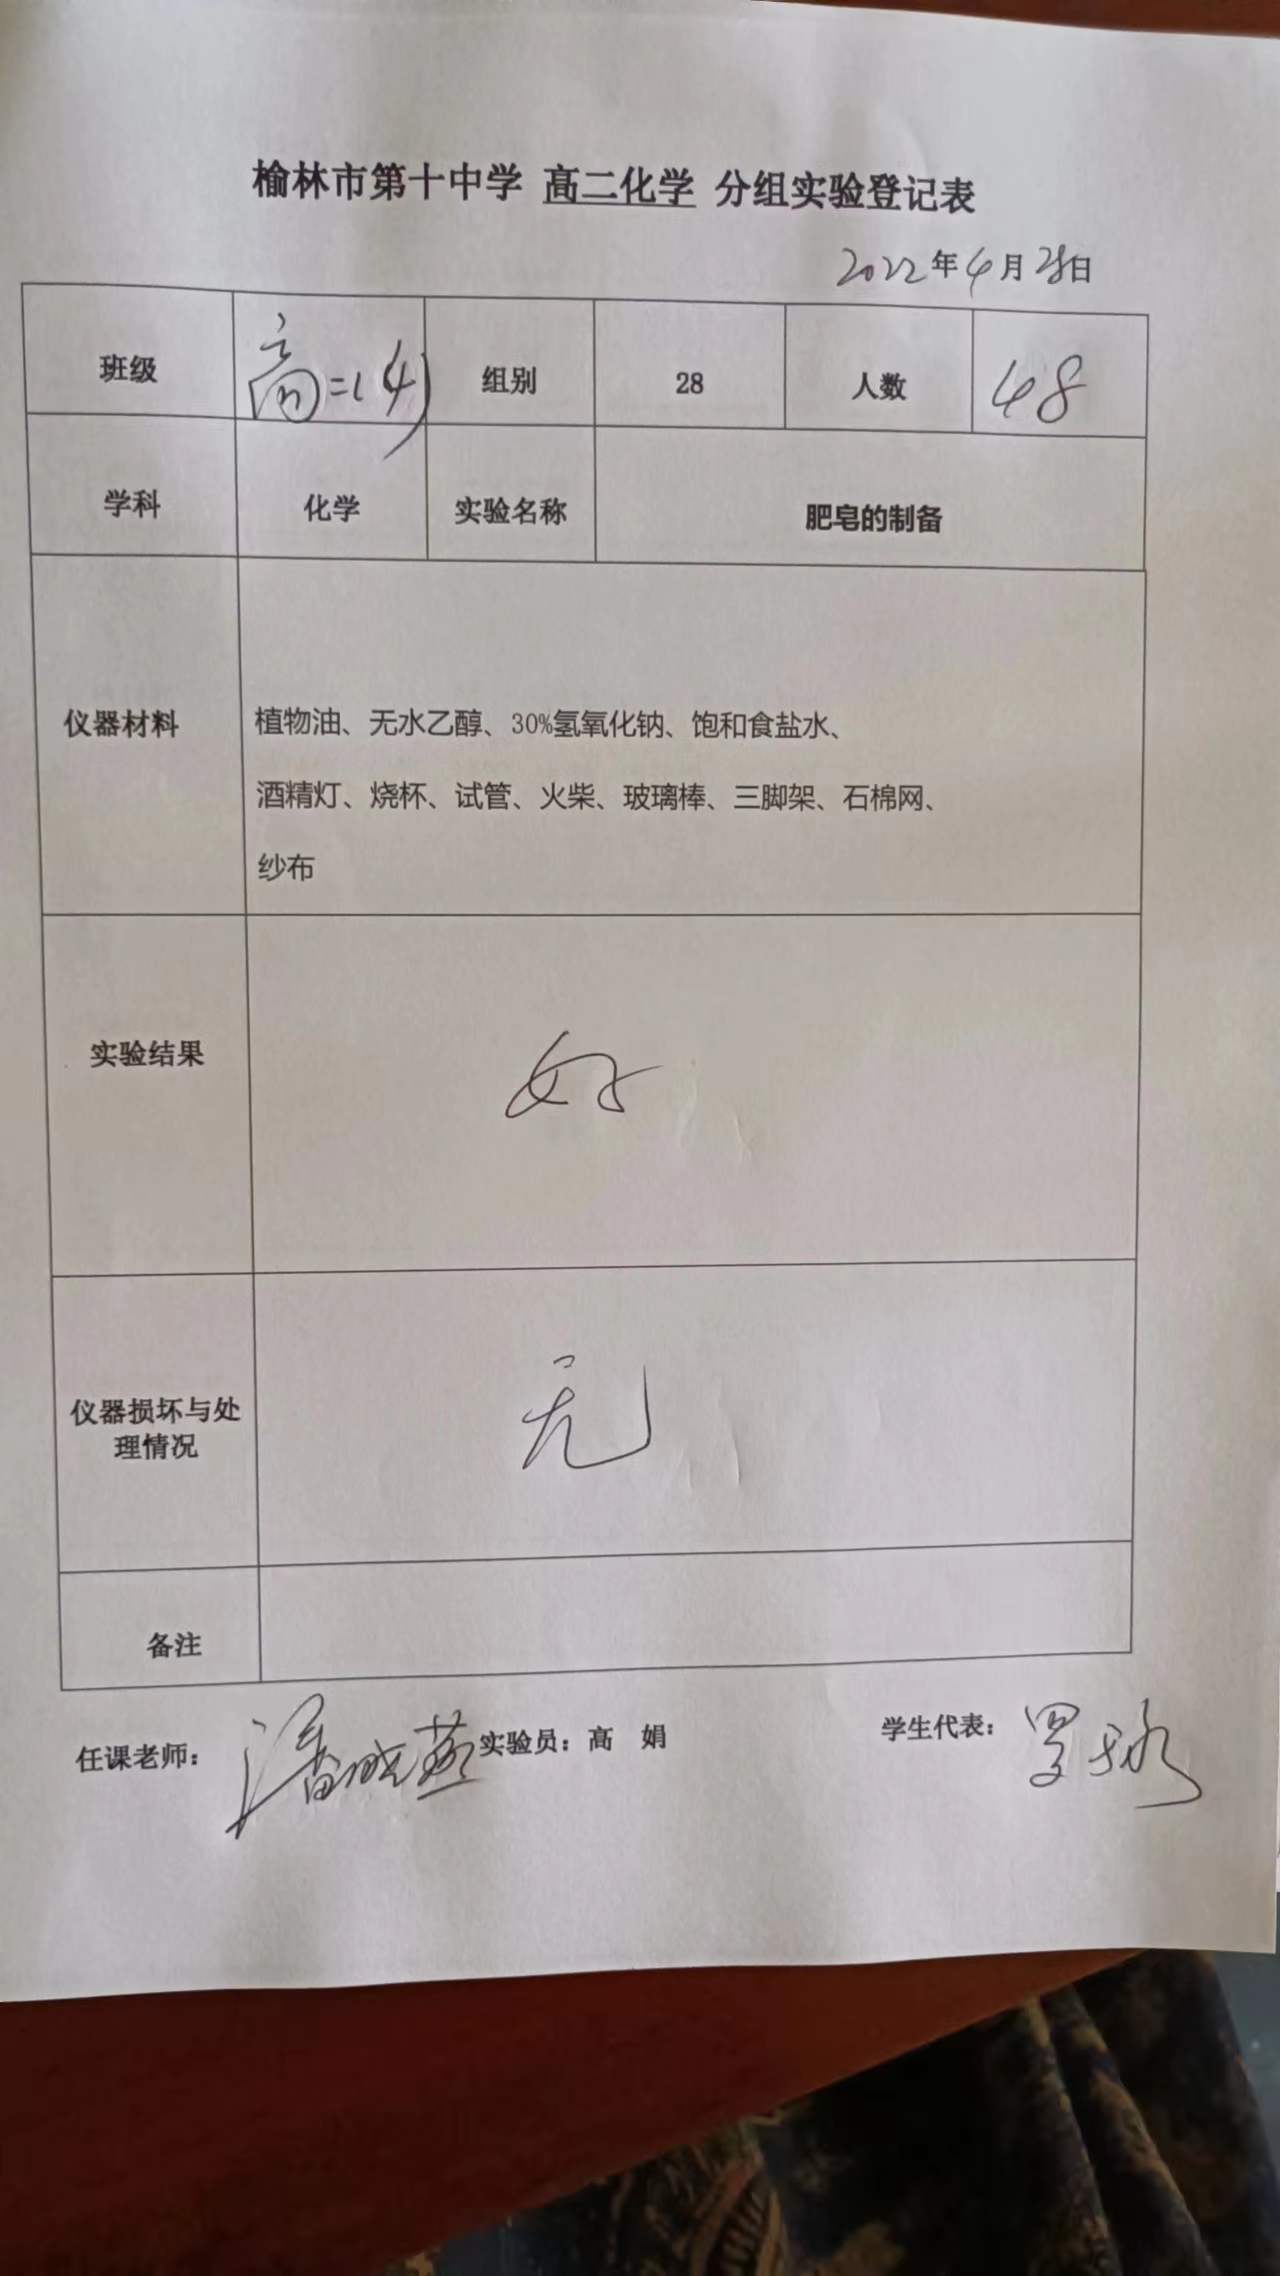 榆林市第十中学 高二化学 分组实验登记表
2022年4月28日
班级 高二(4) 组别 28 人数 48
学科 化学 实验名称 肥皂的制备
仪器材料
植物油、无水乙醇、30%氢氧化钠、饱和食盐水、
酒精灯、烧杯、试管、火柴、玻璃棒、三脚架、石棉网、
纱布
实验结果 好
仪器损坏与处
理情况
无
备注
任课老师: 潘晓燕 实验员: 高 娟 学生代表: 罗